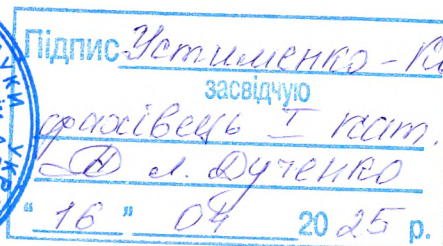 Підпис Устименко - К
засвідчую
фахівець I кат.
Л. Дученко
“ 16 ” 04 20 25 р.